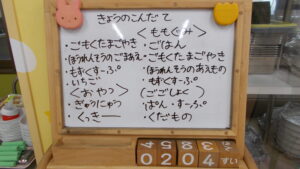 きょうのこんだて
・ごもくたまごやき
・ほうれんそうのごまあえ
・もずくすーぷ
・いちご
<おやつ>
・ぎゅうにゅう
・くっきー
<ももぐみ>
・ごはん
・ごもくたまごやき
・ほうれんそうのあえもの
・もずくすーぷ
(ごごしょく)
・ぱん・すーぷ
・くだもの
04 24 すい
00